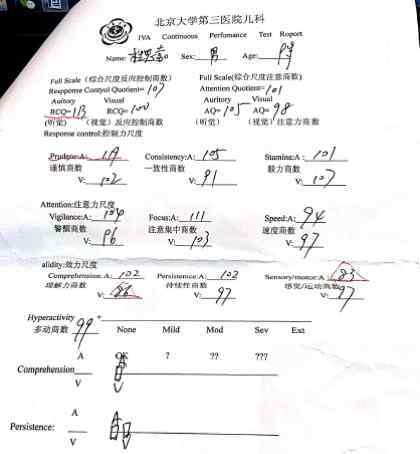 北京大学第三医院儿科
IVA Continuous Perfomance Test Report
Name: Sex: 男 Age:
Full Scale (综合尺度反应控制商数) Full Scale(综合尺度注意商数)
Respponse Contyol Quotient= 107 Attention Quotient= 101
Auritory Visual Auritory Visual
RCQ= RCQ= 100 AQ= 105 AQ= 98
(听觉) (视觉)反应控制商数 (听觉) (视觉)注意力商数
Response control:控制力尺度
Prudence:A: Consistency:A: 105 Stamina:A: 101
谨慎商数 一致性商数 毅力商数
V: 102 V: 91 V: 107
Attention:注意力尺度
Vigilance:A: 104 Focus:A: 111 Speed:A: 94
警醒商数 注意集中商数 速度商数
V: 96 V: 103 V: 97
alidity:效力尺度
Comprehension:A: 102 Persistence:A: 102 Sensory/motor:A: 83
理解力商数 持续性商数 感觉/运动商数
V: V: 97 V: 97
Hyperactivity
多动商数 99 None Mild Mod Sev Ext
A OK ? ?? ???
Comprehension
V
A
Persistence:
V